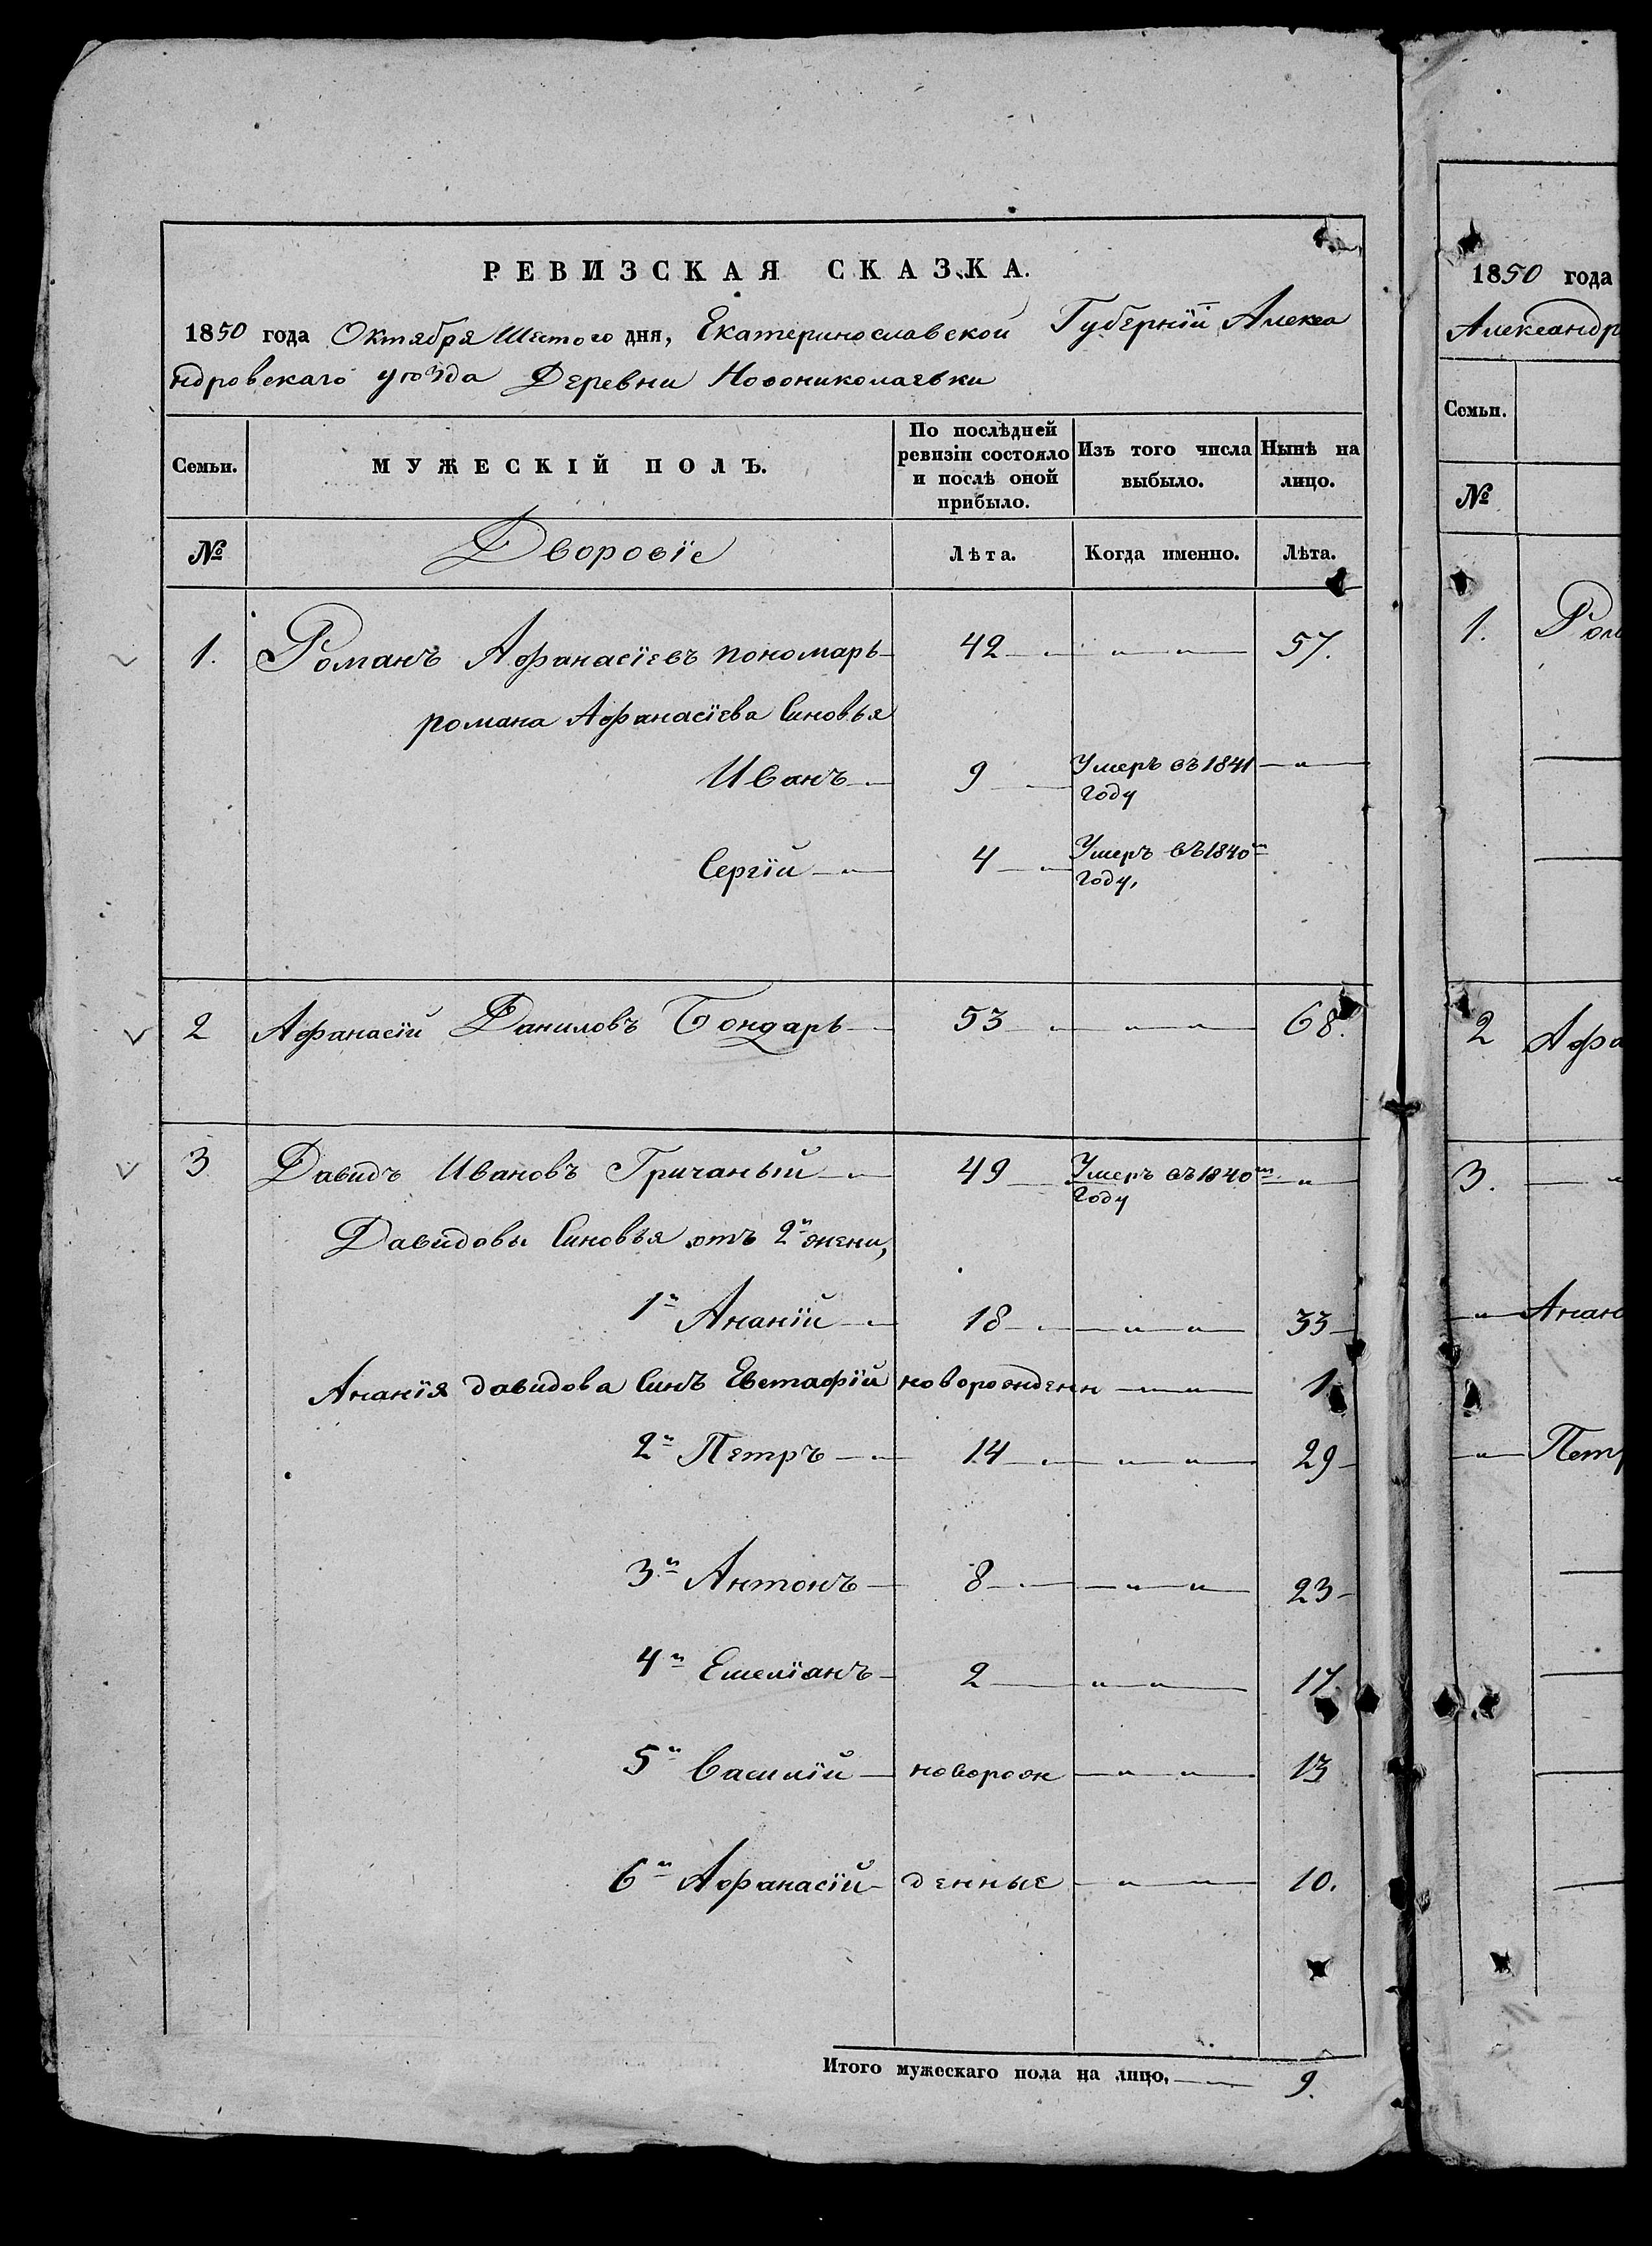 РЕВИЗСКАЯ СКАЗКА.
1850 года Октября Шестого дня, Екатеринославской Губерніи Алекса
ндровскаго уѣзда Деревни Новониколаевки
Семьи. МУЖЕСКІЙ ПОЛЪ. По послѣдней ревизіи состояло и послѣ оной прибыло. Изъ того числа выбыло. Нынѣ на лицо.
№ Дворовіе Лѣта. Когда именно. Лѣта.
1. Романъ Афанасіевъ пономарь 42 — „ — „ — 57.
романа Афанасіева Синовья
Иванъ 9 Умеръ въ 1841 году — „ —
Сергій — „ — 4 Умеръ въ 1840м году,
2 Афанасій Даниловъ Бондарь 53 — „ — „ — 68.
3 Давидъ Ивановъ Гричаный 49 Умеръ въ 1840м году — „ —
Давидовы Синовья отъ 2й жени,
1й Ананій 18 — „ — „ — 33
Ананія давидова Синъ Евстафій новорожденн — „ — 1
2й Петръ 14 — „ — „ — 29
3й Антонъ 8 — „ — „ — 23
4й Емеліанъ 2 — „ — „ — 17
5й Василій новорож — „ — „ — 13
6й Афанасій денные — „ — „ — 10.
Итого мужескаго пола на лицо, 9.
1850 года
Александр
Семьи.
№
1. Ром
2 Афа
3. — „
— „ — Анан
— „ — Петр